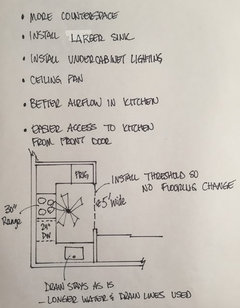 • MORE COUNTERSPACE
• INSTALL LARGER SINK
• INSTALL UNDERCABINET LIGHTING
• CEILING FAN
• BETTER AIRFLOW IN KITCHEN
• EASIER ACCESS TO KITCHEN
FROM FRONT DOOR
FRIG
INSTALL THRESHOLD SO
NO FLOORING CHANGE
±5' wide
30"
Range
24"
DW
DRAIN STAYS AS IS
- LONGER WATER & DRAIN LINES USED